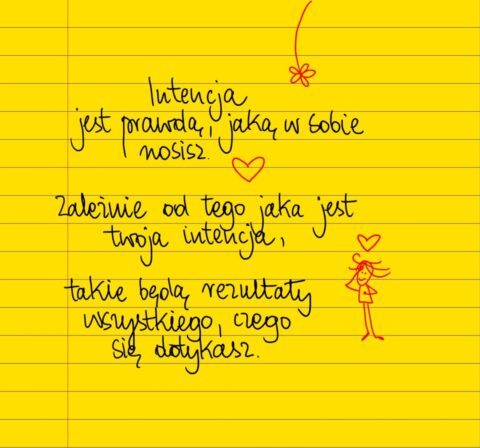 Intencja
jest prawdą, jaką w sobie
nosisz.
Zależnie od tego jaka jest
twoja intencja,
takie będą rezultaty
wszystkiego, czego
się dotykasz.